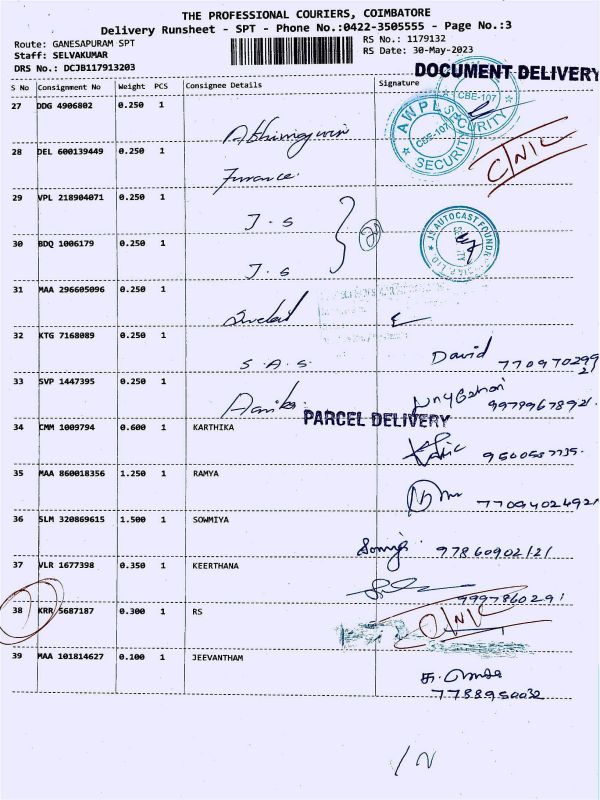 THE PROFESSIONAL COURIERS, COIMBATORE
Delivery Runsheet - SPT - Phone No.:0422-3505555 - Page No.:3
Route: GANESAPURAM SPT
RS No.: 1179132
Staff: SELVAKUMAR
RS Date: 30-May-2023
DRS No.: DCJB117913203
DOCUMENT DELIVERY
S No Consignment No Weight PCS Consignee Details Signature
27 DDG 4906802 0.250 1
CBE-107
AWPL SECURITY CBE-107 SECURITY
28 DEL 600139449 0.250 1
Furnance
C/NIC
29 VPL 218904071 0.250 1
J.S
30 BDQ 1006179 0.250 1
J.S
JS AUTOCAST FOUNDR
31 MAA 296605096 0.250 1
32 KTG 7168089 0.250 1
S.A.S.
David
33 SVP 1447395 0.250 1
PARCEL DELIVERY
34 CMM 1009794 0.600 1 KARTHIKA
35 MAA 860018356 1.250 1 RAMYA
7709402492
36 SLM 320869615 1.500 1 SOWMIYA
97860902121
37 VLR 1677398 0.350 1 KEERTHANA
9997860291
38 KRR 5687187 0.300 1 RS
39 MAA 101814627 0.100 1 JEEVANTHAM
7788950032